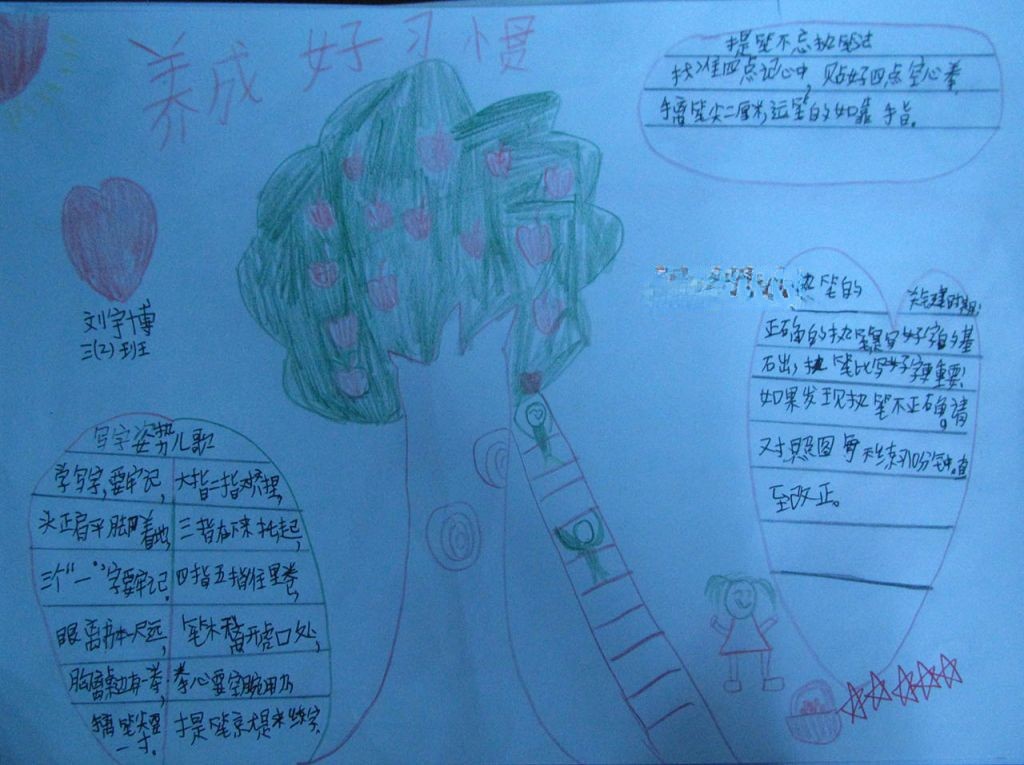 养成好习惯
提笔不忘执笔法
找准四点记心中,贴好四点空心拳,
手离笔尖二厘米,运笔的如靠手指。
刘宇博
三(2)班
执笔的
关键时期:
正确的执笔是写好字的基
石出,执笔比写好字更重要!
如果发现执笔不正确,请
对照图每天练习10分钟。直
至改正。
写字姿势儿歌
学写字,要牢记, 大指二指对捏,
头正肩平脚着地, 三指右下来托起,
三个“一”字要牢记. 四指五指往里卷,
眼离书本一尺远, 笔木稍离开虎口处,
胸离桌边有一拳, 拳心要空腕用力
手离笔尖要一寸。 提笔就是来练字.